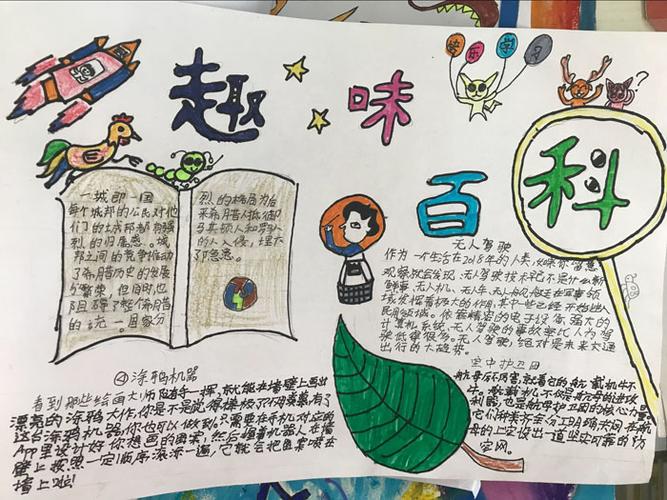 快乐学习
趣味
百科
?
一城即一国
每个城邦的公民对他
们的土城邦都有强
烈的归属感。城
邦之间的竞争推动
了希腊历史的发展
与繁荣,但同时也
阻碍了整个希腊
的统一。国家分
烈的格局为后
来希腊人抵御
马其顿人和罗马
的人入侵,埋下
了隐患。
无人驾驶
作为一个生活在2018年的人类,如果你留意
观察就会发现,无人驾驶技术已不是什么新
鲜事,无人机、无人车、无人舰船在军事领
域发挥着极大的作用,其中一些已经开始进入
民用领域。依靠精密的电子设备、强大的
计算机系统,无人驾驶的事故率比人为驾
驶低得很多。无人驾驶,绝对是未来交通
出行的大趋势。
空中护卫
航母的上空设出一道坚实可靠的防
空网。
④涂鸦机器
看到那些绘画大师随手一挥,就能在墙壁上画出
漂亮的涂鸦大作,你是不是觉得棒极了
这台涂鸦机器,你也可以做到,只需要在手机对应的
App里设计好你想色的图案,然后握着机器人在墙
壁上按照一定顺序滚涂一遍,它就会把图案喷在
墙上啦!